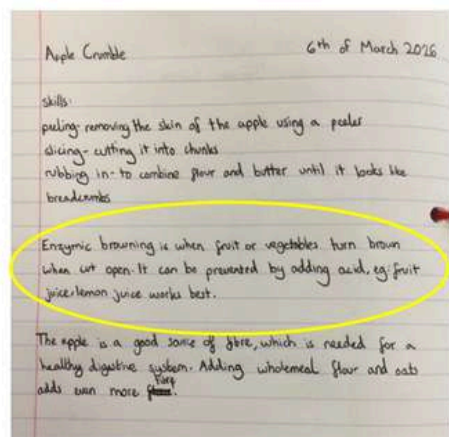 Apple Crumble 6th of March 2026
skills:
peeling- removing the skin of the apple using a peeler
slicing- cutting it into chunks
rubbing in- to combine flour and butter until it looks like
breadcrumbs
Enzymic browning is when fruit or vegetables. turn brown
when cut open. It can be prevented by adding acid, eg: fruit
juice. lemon juice works best.
The apple is a good sorce of fibre, which is needed for a
healthy digestive system. Adding wholemeal flour and oats
adds even more fibre.